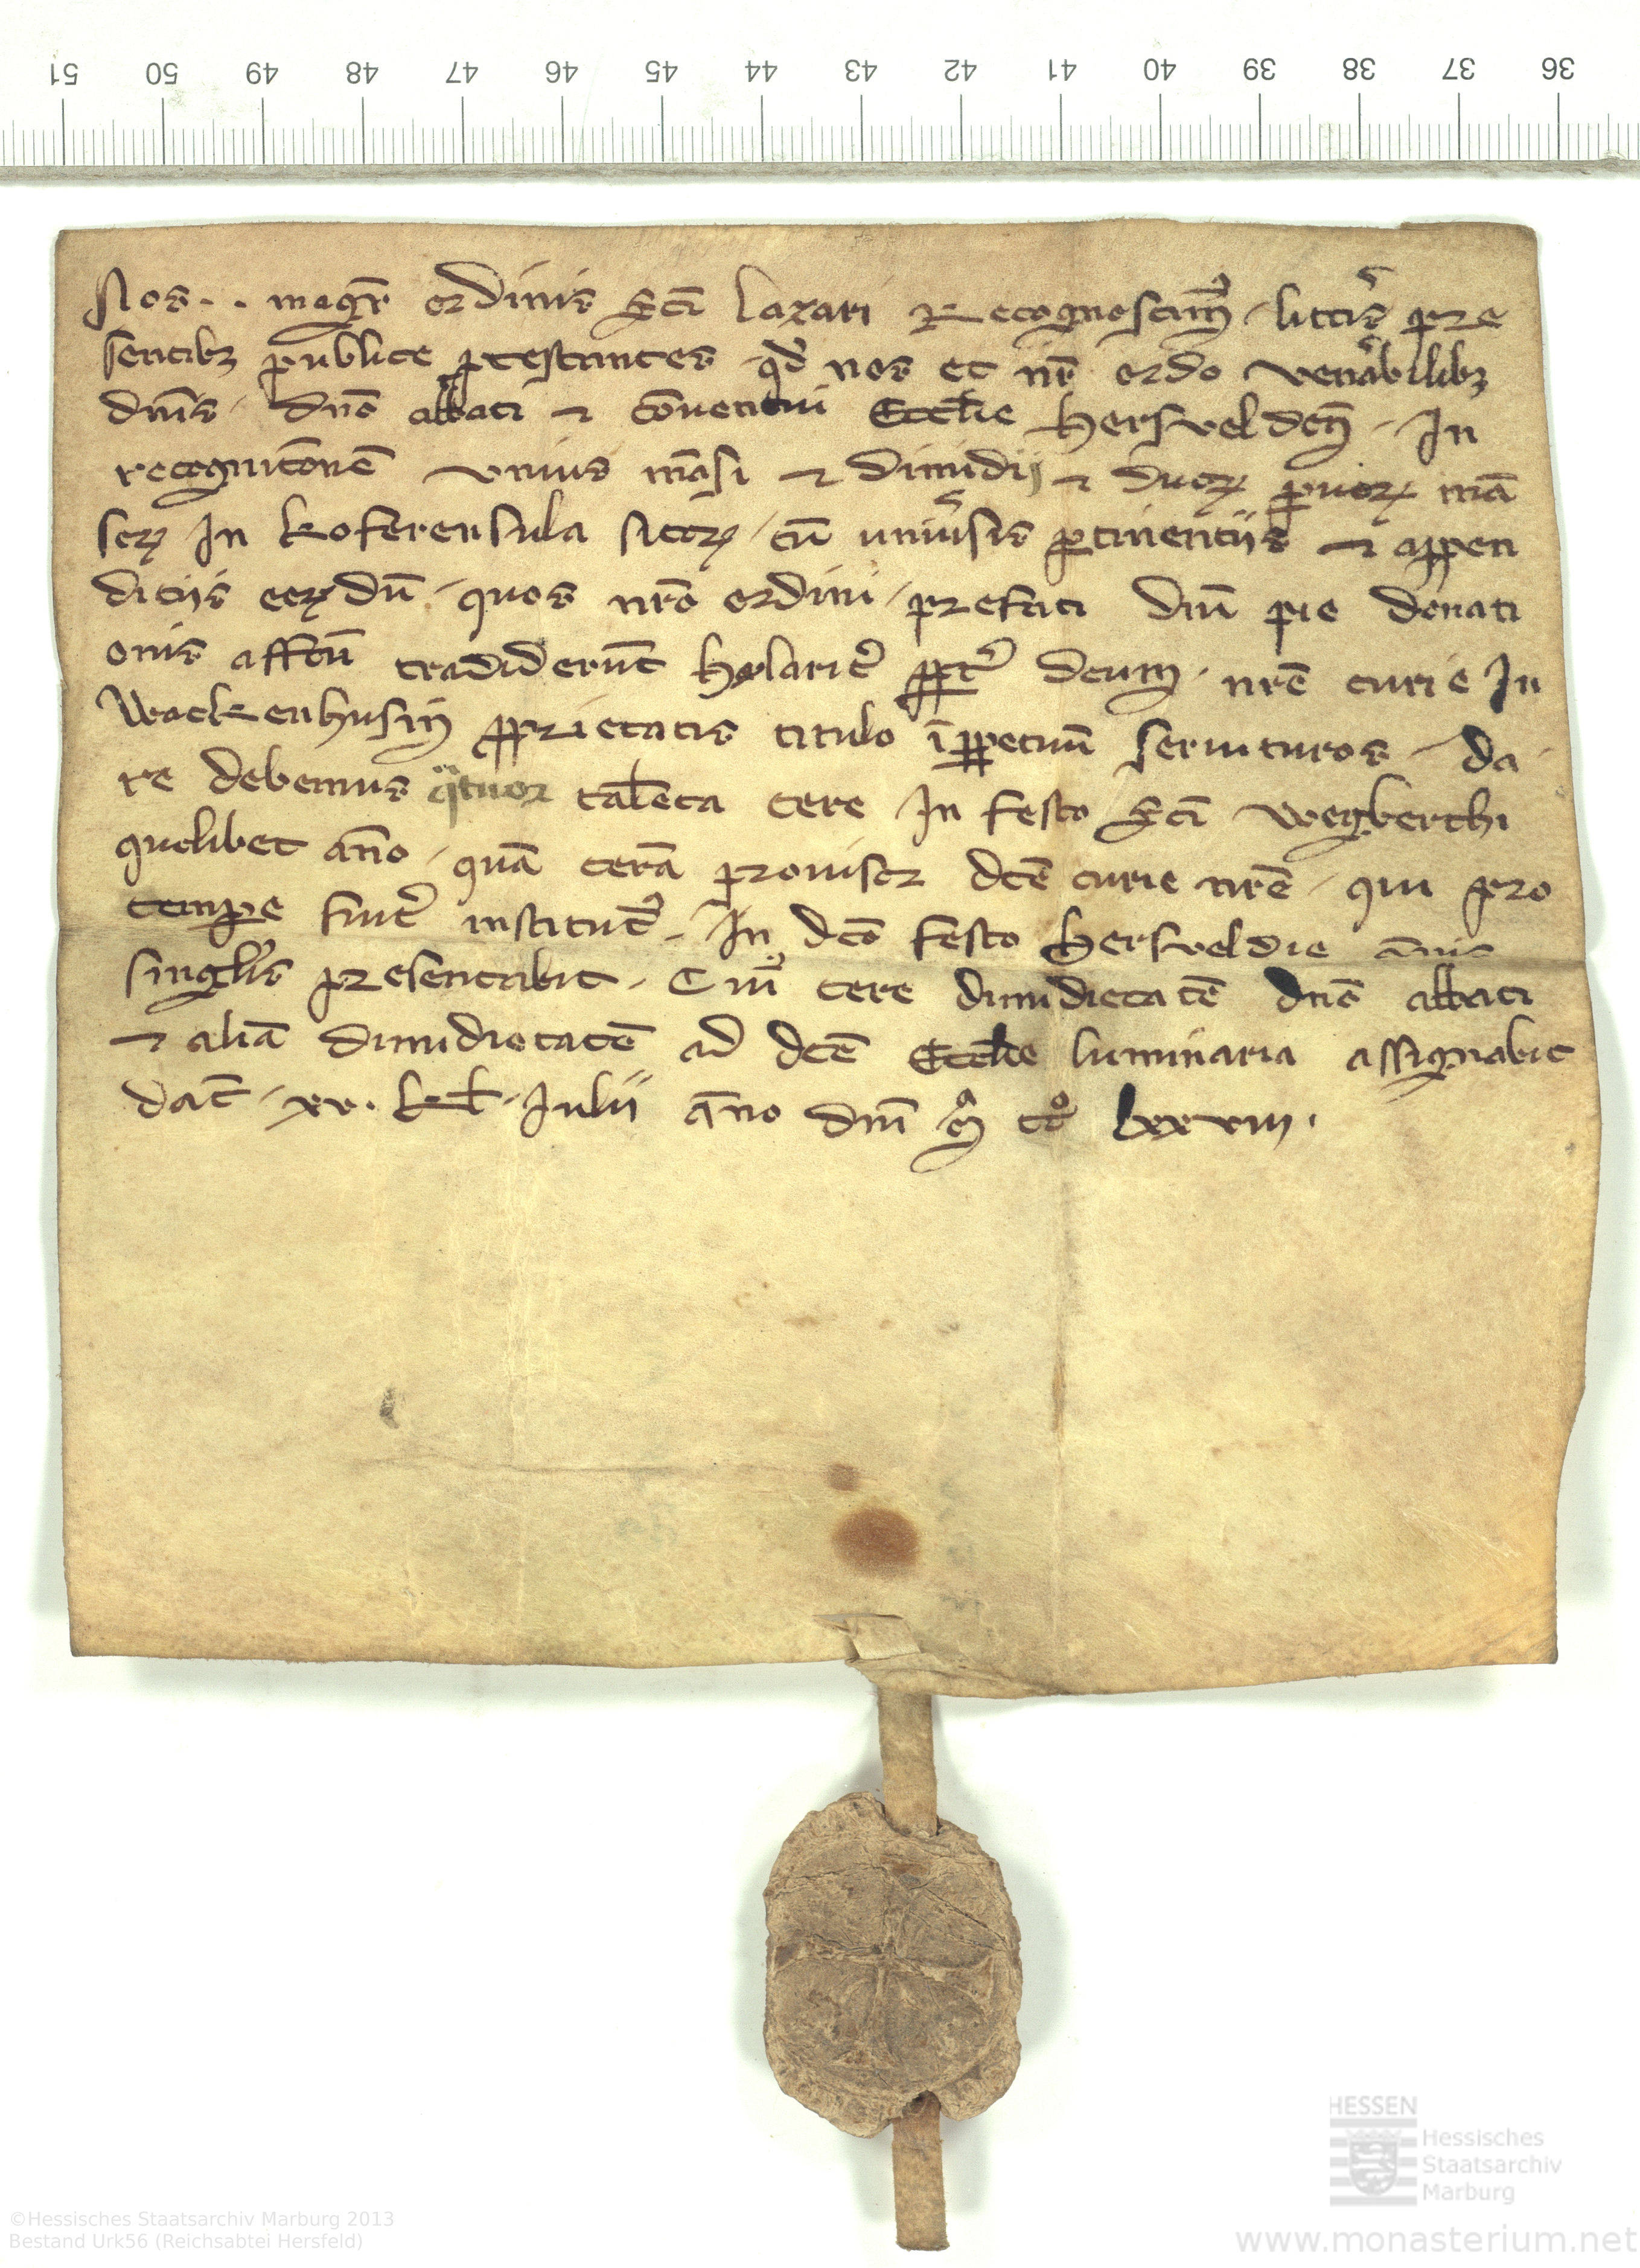 51 50 49 48 47 46 45 44 43 42 41 40 39 38 37 36
Nos . . magr̄ ordinis sc̄i Lazari Recognoscim⁹ litt̾is pre
sentibꝫ publice ꝓtestantes qđ nos et nr̄ ordo ven̾abilibꝫ
dn̄is dn̄o abbati ⁊ cōventui Eccl̄ie Hersveldeñ . In
recognitōnē vnius māsi ⁊ dimidij ⁊ duoꝝ ꝑuoꝝ mā
soꝝ In koferensula sitoꝝ cū univ̾sis ꝑtinentiis ⁊ appen
ditiis eoꝝdū quos nr̄o ordini prefati dn̄i pie donati
onis affc̄u tradiderūt hylarit̾ ꝓpt̾ deum nr̄e curie In
Wackenhusin ꝓprietatis titulo īꝑpetuū seruituros da
re debemus qͣtuor tal̄eta cere In festo sc̄i Wegberthi
quolibet āno quā cerā prouisor dc̄e curie nr̄e qui pro
tempe fuit̾ institut⁹ In dc̄o festo Hersveldie ānis
singl̄is presentabit . Cui⁹ cere dimidietatē dn̄o abbati
⁊ aliā dimidietatē ad dc̄e Eccl̄ie luminaria assignabit
dat̄ xv. kl̄ Julii āno dn̄i mͦ ccͦ lxxviii .
HESSEN
Hessisches
Staatsarchiv
Marburg
©Hessisches Staatsarchiv Marburg 2013
Bestand Urk56 (Reichsabtei Hersfeld)
www.monasterium.net